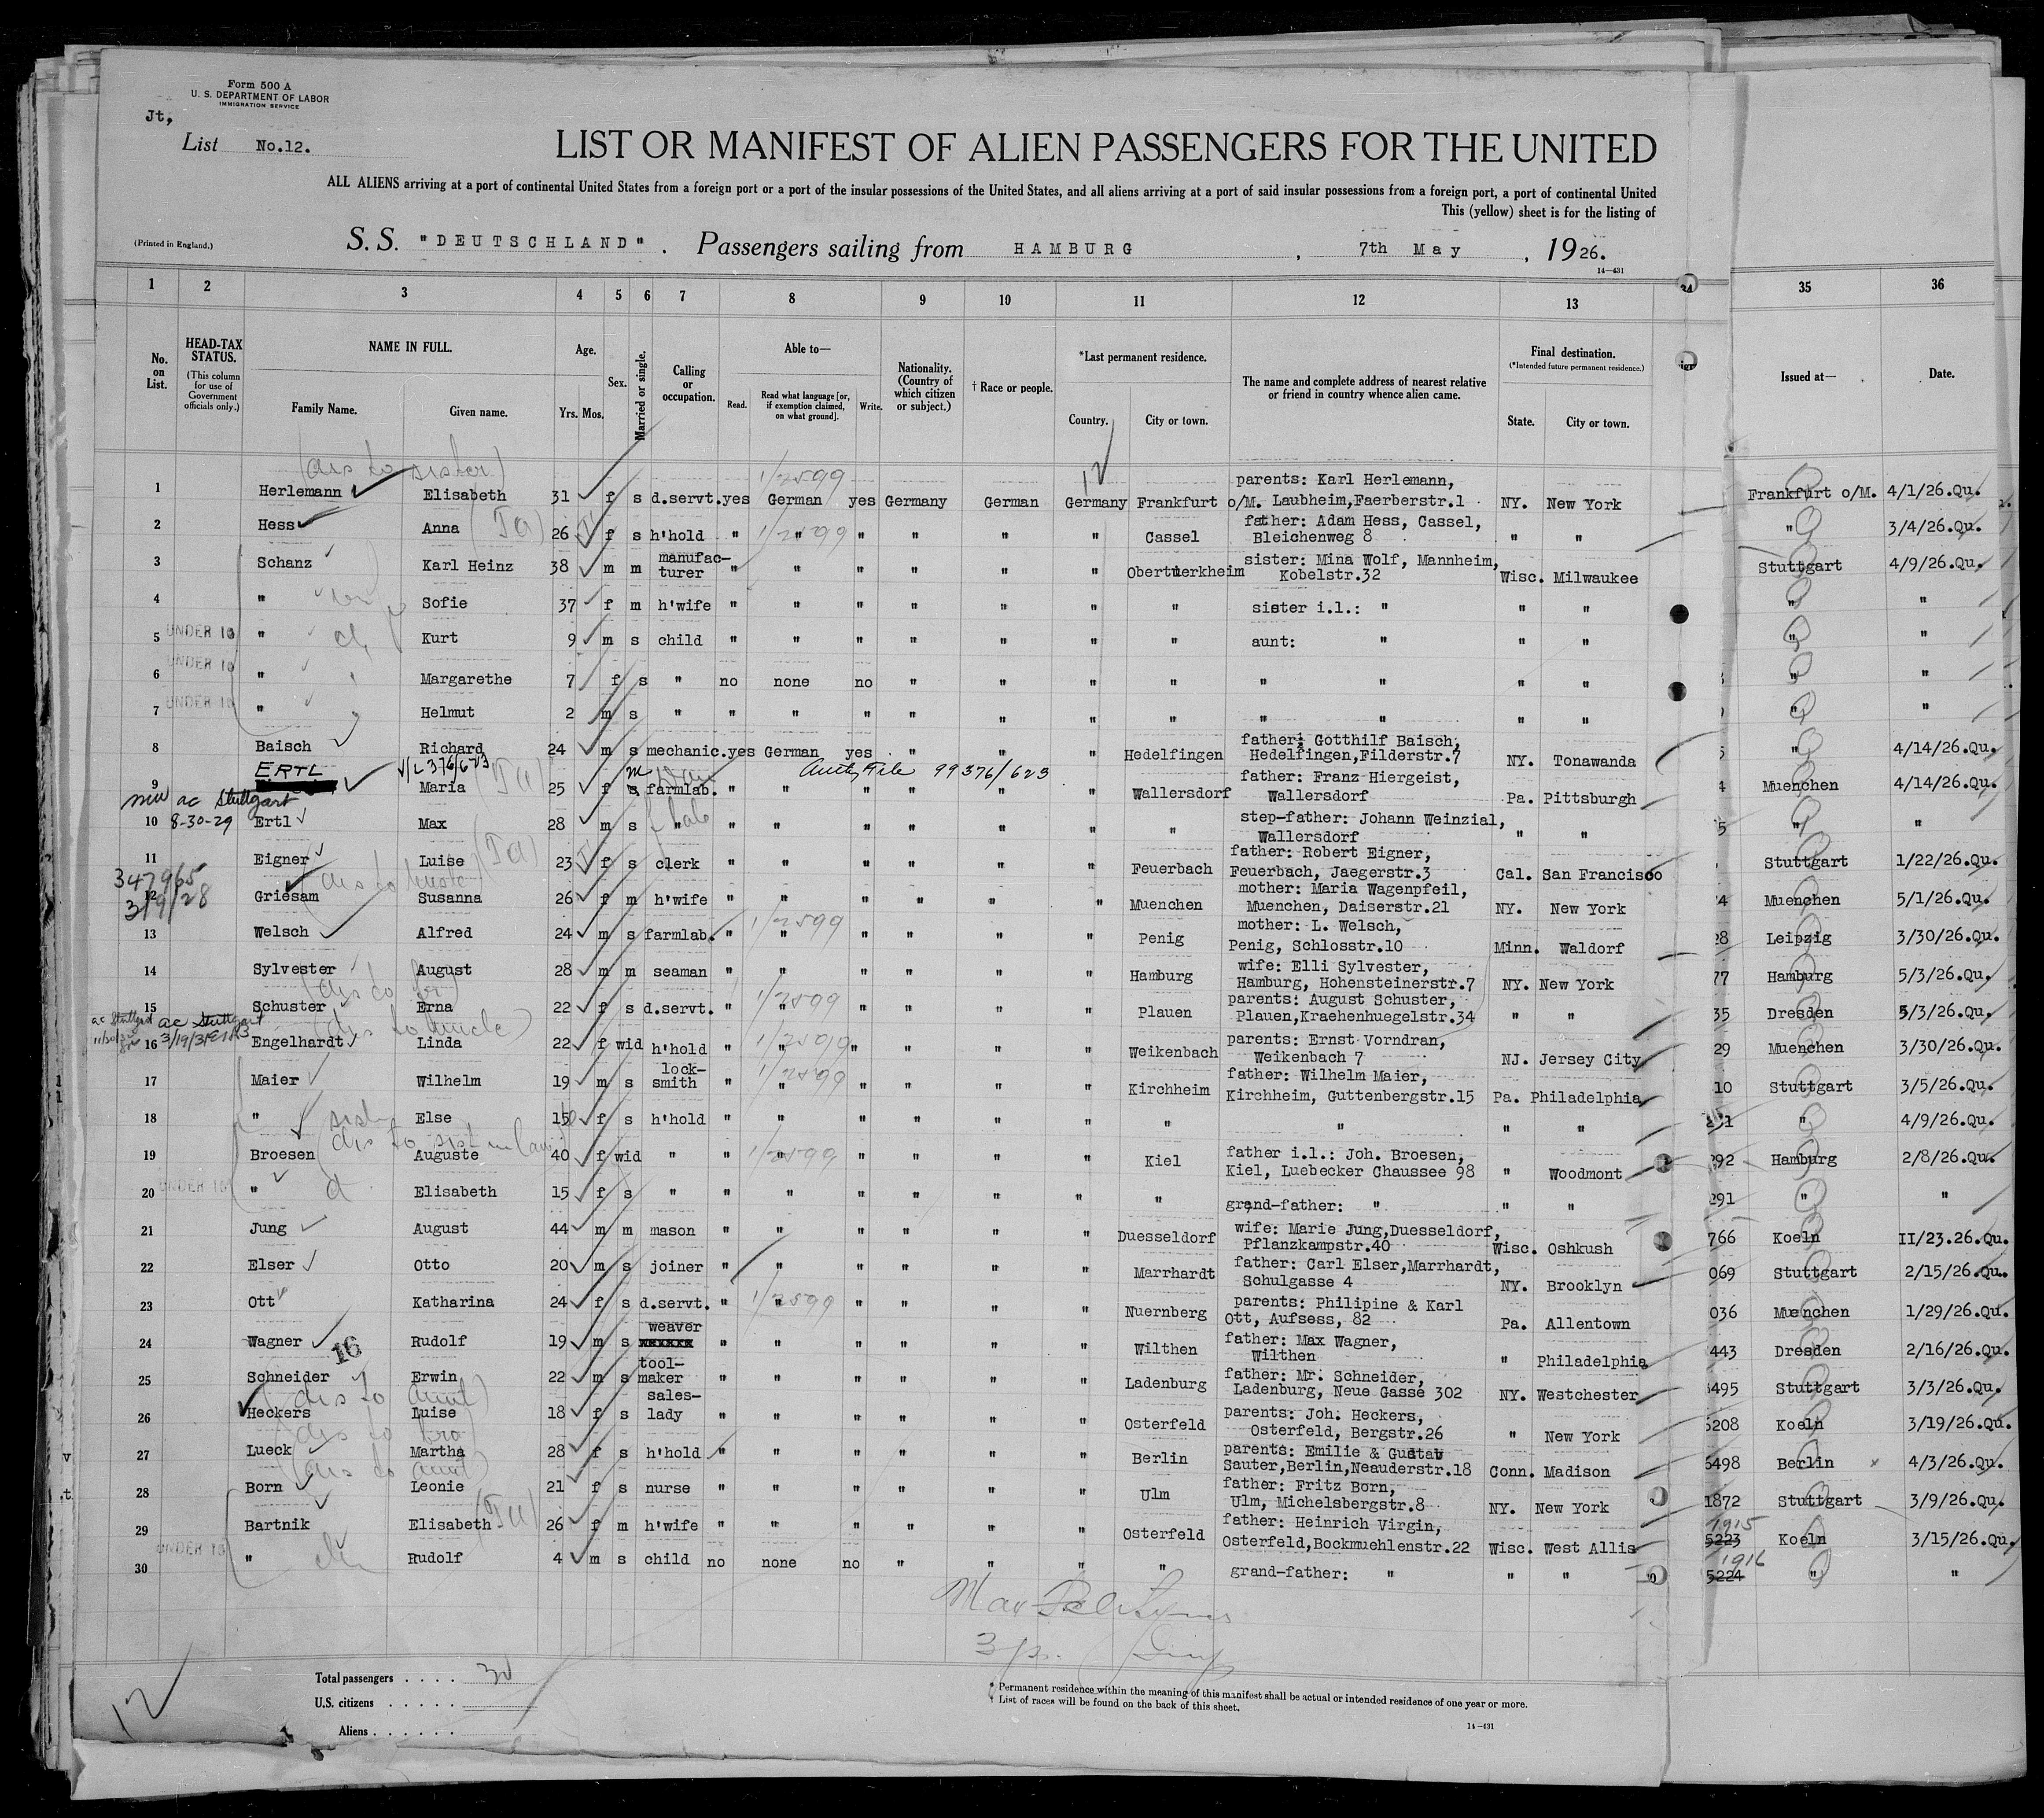 Form 500 A
U. S. DEPARTMENT OF LABOR
IMMIGRATION SERVICE
Jt,
List No.12.
LIST OR MANIFEST OF ALIEN PASSENGERS FOR THE UNITED
ALL ALIENS arriving at a port of continental United States from a foreign port or a port of the insular possessions of the United States, and all aliens arriving at a port of said insular possessions from a foreign port, a port of continental United
This (yellow) sheet is for the listing of
(Printed in England.) S. S. "DEUTSCHLAND". Passengers sailing from HAMBURG, 7th May, 1926.
14—431
1 2 3 4 5 6 7 8 9 10 11 12 13 34 35 36
No. on List. HEAD-TAX STATUS. (This column for use of Government officials only.) NAME IN FULL. Family Name. Given name. Age. Yrs. Mos. Sex. Married or single. Calling or occupation. Able to— Read. Read what language [or, if exemption claimed, on what ground]. Write. Nationality. (Country of which citizen or subject.) † Race or people. *Last permanent residence. Country. City or town. The name and complete address of nearest relative or friend in country whence alien came. Final destination. (*Intended future permanent residence.) State. City or town. Issued at— Date.
(dis to sister) 1/2599 12
parents: Karl Herlemann,
1 Herlemann Elisabeth 31 f s d.servt. yes German yes Germany German Germany Frankfurt o/M. Laubheim,Faerberstr.1 NY. New York Frankfurt o/M. 4/1/26.Qu.
father: Adam Hess, Cassel,
2 Hess Anna 26 f s h'hold " " " " " " Cassel Bleichenweg 8 " " " 3/4/26.Qu.
1/2599
manufac- sister: Mina Wolf, Mannheim,
3 Schanz Karl Heinz 38 m m turer " " " " " " Obertuerkheim Kobelstr.32 Wisc. Milwaukee Stuttgart 4/9/26.Qu.
4 " Sofie 37 f m h'wife " " " " " " " sister i.l.: " " " " "
UNDER 16
5 " Kurt 9 m s child " " " " " " " aunt: " " " " "
UNDER 16
6 " Margarethe 7 f s " no none no " " " " " " " " " "
UNDER 16
7 " Helmut 2 m s " " " " " " " " " " " " " "
father: Gotthilf Baisch,
8 Baisch Richard 24 m s mechanic. yes German yes " " " Hedelfingen Hedelfingen,Filderstr.7 NY. Tonawanda " 4/14/26.Qu.
ERTL V/L 376/623 m 99376/623
father: Franz Hiergeist,
9 Maria 25 f s farmlab. " " " " " " Wallersdorf Wallersdorf Pa. Pittsburgh Muenchen 4/14/26.Qu.
ac Stuttgart
8-30-29
step-father: Johann Weinzial,
10 Ertl Max 28 m s " " " " " " " " Wallersdorf " " " "
father: Robert Eigner,
11 Eigner Luise 23 f s clerk " " " " " " Feuerbach Feuerbach, Jaegerstr.3 Cal. San Francisco Stuttgart 1/22/26.Qu.
347965
3/9/28
mother: Maria Wagenpfeil,
12 Griesam Susanna 26 f m h'wife " " " " " " Muenchen Muenchen, Daiserstr.21 NY. New York Muenchen 5/1/26.Qu.
1/2599
mother: L. Welsch,
13 Welsch Alfred 24 m s farmlab. " " " " " " Penig Penig, Schlosstr.10 Minn. Waldorf 28 Leipzig 3/30/26.Qu.
wife: Elli Sylvester,
14 Sylvester August 28 m m seaman " " " " " " Hamburg Hamburg, Hohensteinerstr.7 NY. New York 77 Hamburg 5/3/26.Qu.
1/2599
parents: August Schuster,
15 Schuster Erna 22 f s d.servt. " " " " " " Plauen Plauen,Kraehenhuegelstr.34 " " 35 Dresden 5/3/26.Qu.
ac Stuttgart ac Stuttgart
(dis to uncle)
parents: Ernst Vorndran,
16 Engelhardt Linda 22 f wid h'hold " " " " " " Weikenbach Weikenbach 7 NJ. Jersey City 29 Muenchen 3/30/26.Qu.
lock- 1/2599 father: Wilhelm Maier,
17 Maier Wilhelm 19 m s smith " " " " " " Kirchheim Kirchheim, Guttenbergstr.15 Pa. Philadelphia 10 Stuttgart 3/5/26.Qu.
18 " Else 15 f s h'hold " " " " " " " " " " " 4/9/26.Qu.
(dis to sist in law)
1/2599
father i.l.: Joh. Broesen,
19 Broesen Auguste 40 f wid " " " " " " " Kiel Kiel, Luebecker Chaussee 98 " Woodmont 292 Hamburg 2/8/26.Qu.
UNDER 16
20 " Elisabeth 15 f s " " " " " " " " grand-father: " " " 291 " "
wife: Marie Jung,Duesseldorf,
21 Jung August 44 m m mason " " " " " " Duesseldorf Pflanzkampstr.40 Wisc. Oshkush 766 Koeln II/23.26.Qu.
father: Carl Elser,Marrhardt,
22 Elser Otto 20 m s joiner " " " " " " Marrhardt Schulgasse 4 NY. Brooklyn 069 Stuttgart 2/15/26.Qu.
1/2599
parents: Philipine & Karl
23 Ott Katharina 24 f s d.servt. " " " " " " Nuernberg Ott, Aufsess, 82 Pa. Allentown 036 Muenchen 1/29/26.Qu.
weaver father: Max Wagner,
24 Wagner Rudolf 19 m s xxxxxx " " " " " " Wilthen Wilthen " Philadelphia 443 Dresden 2/16/26.Qu.
16
tool- father: Mr. Schneider,
25 Schneider Erwin 22 m s maker " " " " " " Ladenburg Ladenburg, Neue Gasse 302 NY. Westchester 6495 Stuttgart 3/3/26.Qu.
(dis to aunt)
sales- parents: Joh. Heckers,
26 Heckers Luise 18 f s lady " " " " " " Osterfeld Osterfeld, Bergstr.26 " New York 6208 Koeln 3/19/26.Qu.
(dis to bro)
parents: Emilie & Gustav
27 Lueck Martha 28 f s h'hold " " " " " " Berlin Sauter,Berlin,Neauderstr.18 Conn. Madison 6498 Berlin 4/3/26.Qu.
(dis to aunt)
father: Fritz Born,
28 Born Leonie 21 f s nurse " " " " " " Ulm Ulm, Michelsbergstr.8 NY. New York 1872 Stuttgart 3/9/26.Qu.
father: Heinrich Virgin, 1915
29 Bartnik Elisabeth 26 f m h'wife " " " " " " Osterfeld Osterfeld,Bockmuehlenstr.22 Wisc. West Allis 5223 Koeln 3/15/26.Qu.
UNDER 16 1916
30 " Rudolf 4 m s child no none no " " " " grand-father: " " " 5224 " "
Total passengers . . . . 30
U.S. citizens . . . . .
Aliens . . . . . .
12
* Permanent residence within the meaning of this manifest shall be actual or intended residence of one year or more.
† List of races will be found on the back of this sheet.
14—431